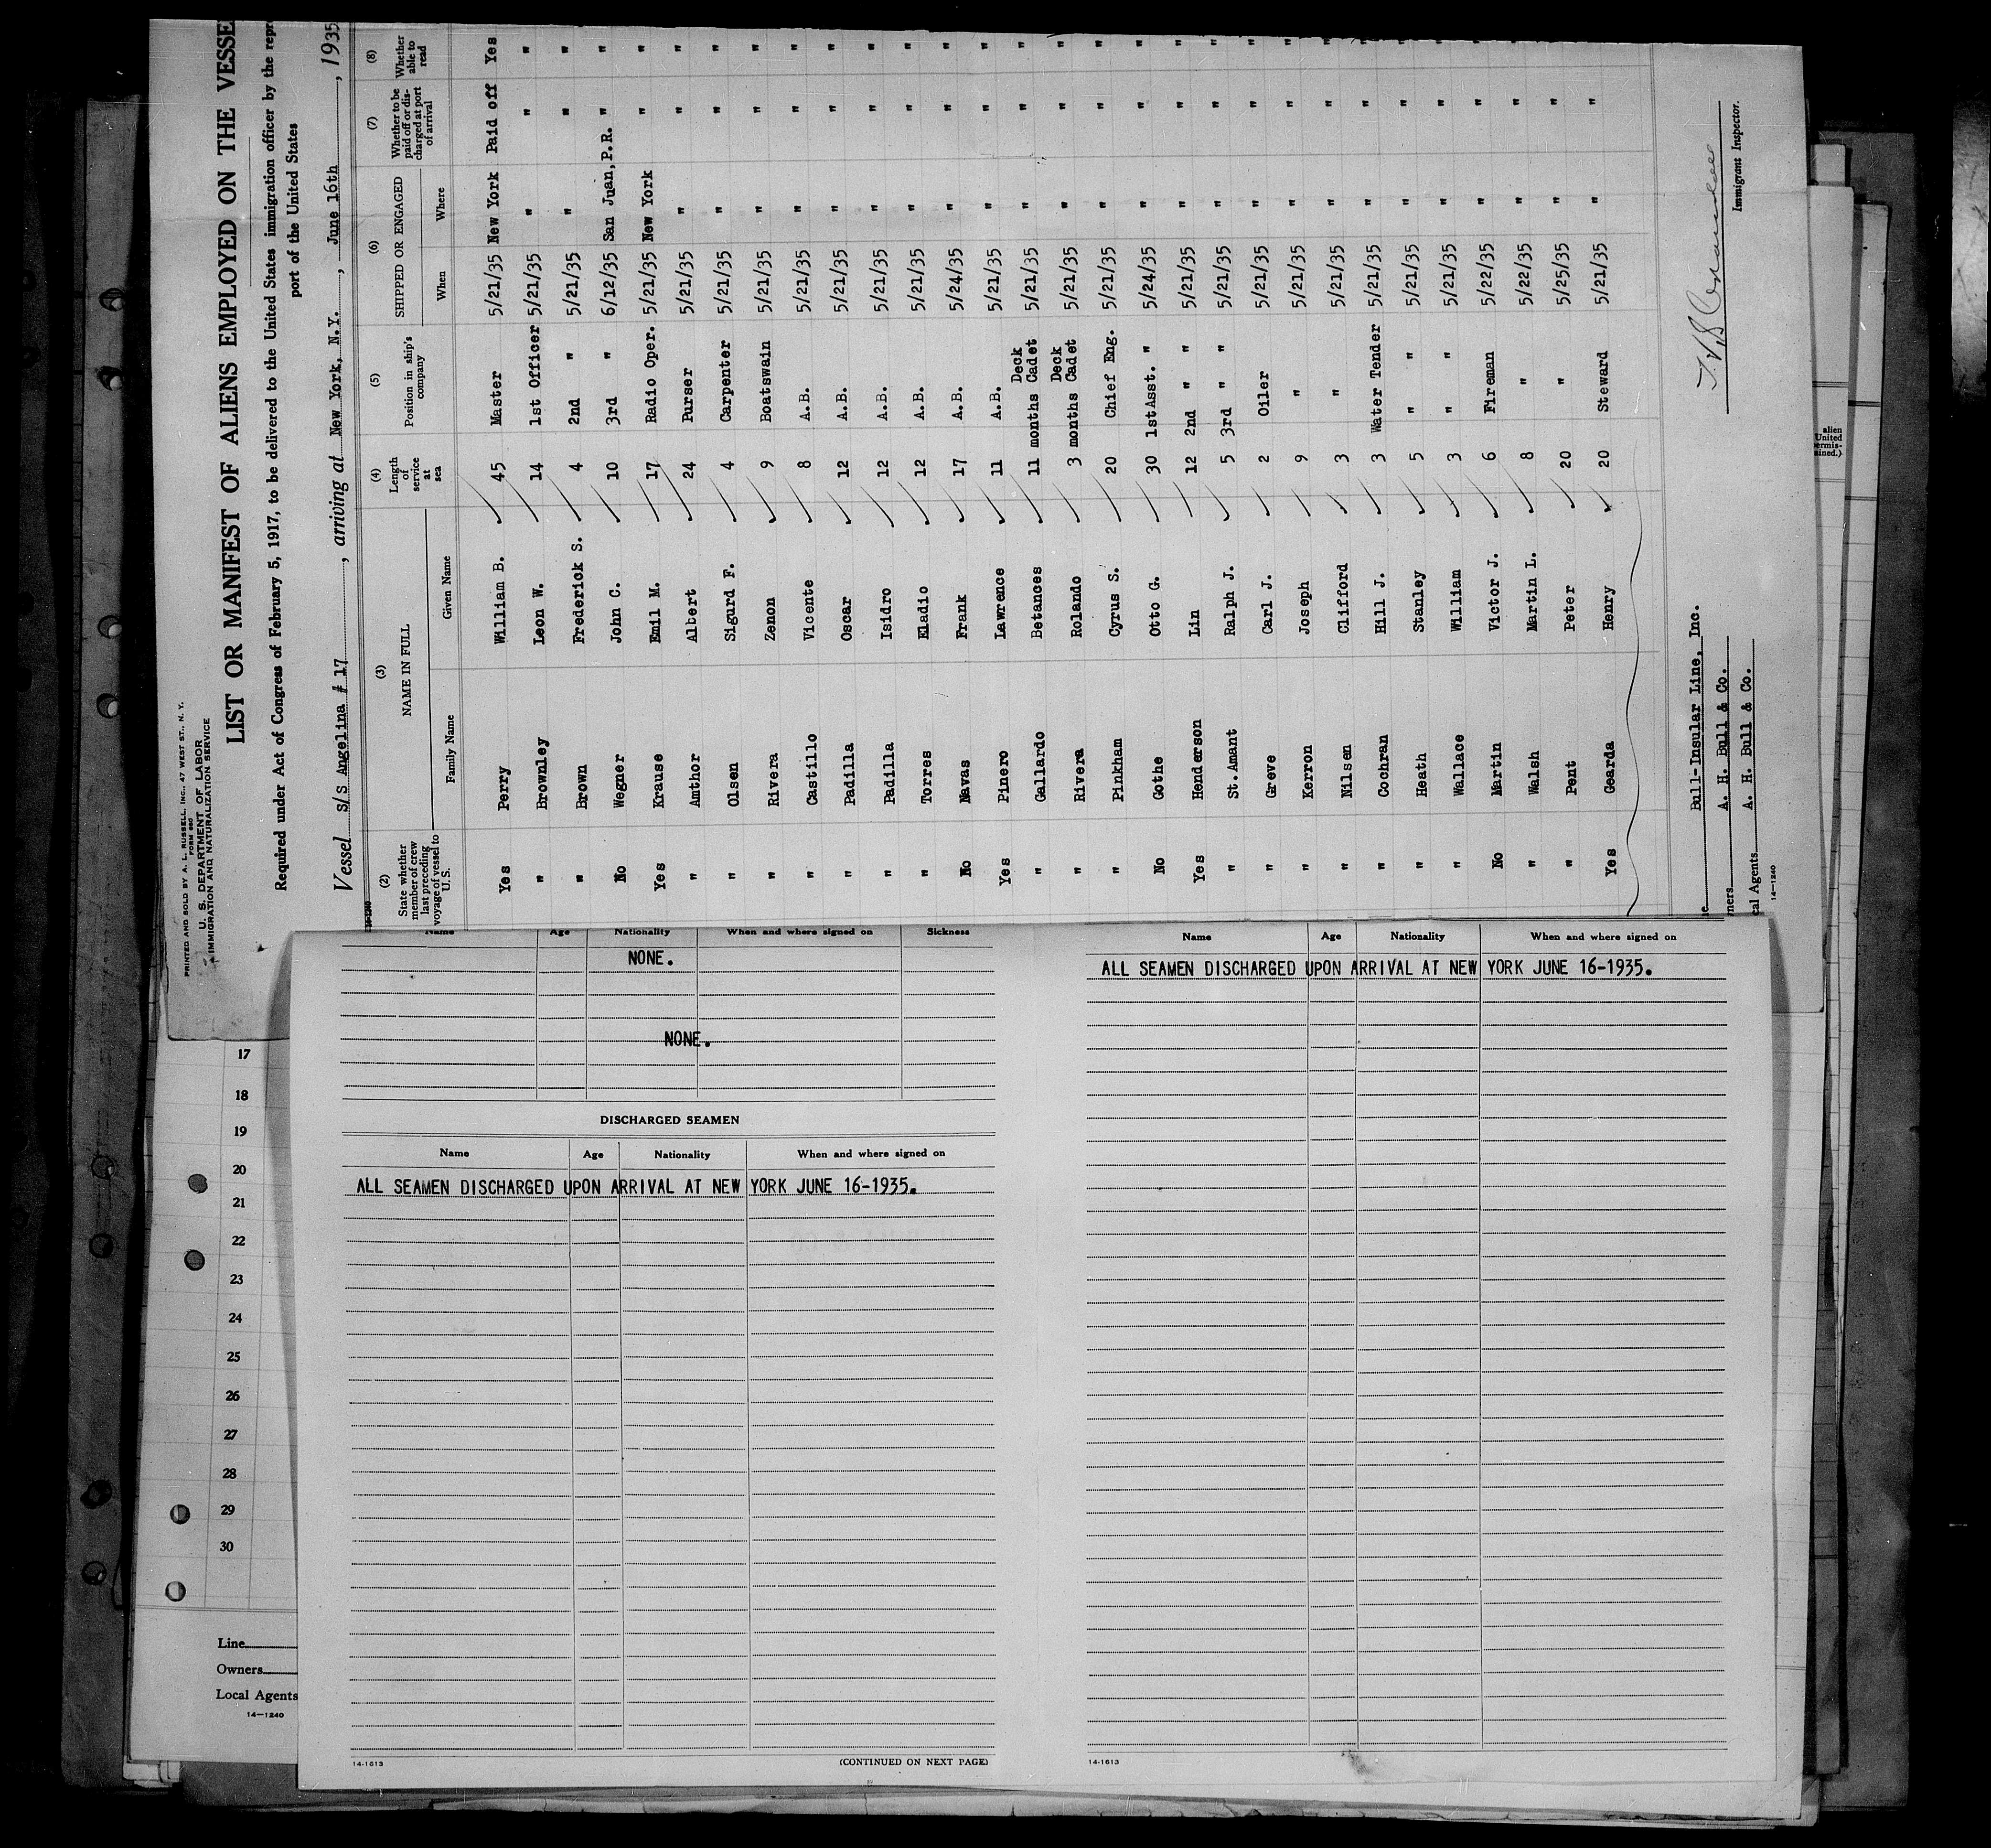 PRINTED AND SOLD BY A. L. RUSSELL, INC., 47 WEST ST., N. Y.
FORM 680
U. S. DEPARTMENT OF LABOR
IMMIGRATION AND NATURALIZATION SERVICE
LIST OR MANIFEST OF ALIENS EMPLOYED ON THE VESSE
Required under Act of Congress of February 5, 1917, to be delivered to the United States immigration officer by the repr
port of the United States
Vessel S/S Angelina # 17, arriving at New York, N.Y., June 16th, 1935
(2) State whether member of crew last preceding voyage of vessel to U. S. (3) NAME IN FULL Family Name Given Name (4) Length of service at sea (5) Position in ship's company (6) SHIPPED OR ENGAGED When Where (7) Whether to be paid off or discharged at port of arrival (8) Whether able to read
Yes Perry William B. 45 Master 5/21/35 New York Paid off Yes
" Brownley Leon W. 14 1st Officer 5/21/35 " " "
" Brown Frederick S. 4 2nd " 5/21/35 " " "
No Wegner John C. 10 3rd " 6/12/35 San Juan, P.R. " "
Yes Krause Emil M. 17 Radio Oper. 5/21/35 New York " "
" Amthor Albert 24 Purser 5/21/35 " " "
" Olsen Sigurd F. 4 Carpenter 5/21/35 " " "
" Rivera Zenon 9 Boatswain 5/21/35 " " "
" Castillo Vicente 8 A.B. 5/21/35 " " "
" Padilla Oscar 12 A.B. 5/21/35 " " "
" Padilla Isidro 12 A.B. 5/21/35 " " "
" Torres Eladio 12 A.B. 5/21/35 " " "
No Navas Frank 17 A.B. 5/24/35 " " "
Yes Pinero Lawrence 11 A.B. 5/21/35 " " "
" Gallardo Betances 11 months Deck Cadet 5/21/35 " " "
" Rivera Rolando 3 months Deck Cadet 5/21/35 " " "
" Pinkham Cyrus S. 20 Chief Eng. 5/21/35 " " "
No Gothe Otto G. 30 1st Asst. " 5/24/35 " " "
Yes Henderson Lin 12 2nd " " 5/21/35 " " "
" St. Amant Ralph J. 5 3rd " " 5/21/35 " " "
" Greve Carl J. 2 Oiler 5/21/35 " " "
" Kerron Joseph 9 " 5/21/35 " " "
" Nilsen Clifford 3 " 5/21/35 " " "
" Cochran Hill J. 3 Water Tender 5/21/35 " " "
" Heath Stanley 5 " " 5/21/35 " " "
" Wallace William 3 " " 5/21/35 " " "
No Martin Victor J. 6 Fireman 5/22/35 " " "
" Walsh Martin L. 8 " 5/22/35 " " "
" Pent Peter 20 " 5/25/35 " " "
Yes Gearda Henry 20 Steward 5/21/35 " " "
ne Bull-Insular Line, Inc.
ners A. H. Bull & Co.
cal Agents A. H. Bull & Co.
14—1240
Immigrant Inspector.
alien
United
permis-
ained.)
Name Age Nationality When and where signed on Sickness
NONE.
NONE.
DISCHARGED SEAMEN
Name Age Nationality When and where signed on
ALL SEAMEN DISCHARGED UPON ARRIVAL AT NEW YORK JUNE 16-1935.
14-1613
(CONTINUED ON NEXT PAGE)
Name Age Nationality When and where signed on
ALL SEAMEN DISCHARGED UPON ARRIVAL AT NEW YORK JUNE 16-1935.
14-1613
17
18
19
20
21
22
23
24
25
26
27
28
29
30
Line
Owners
Local Agents
14—1240